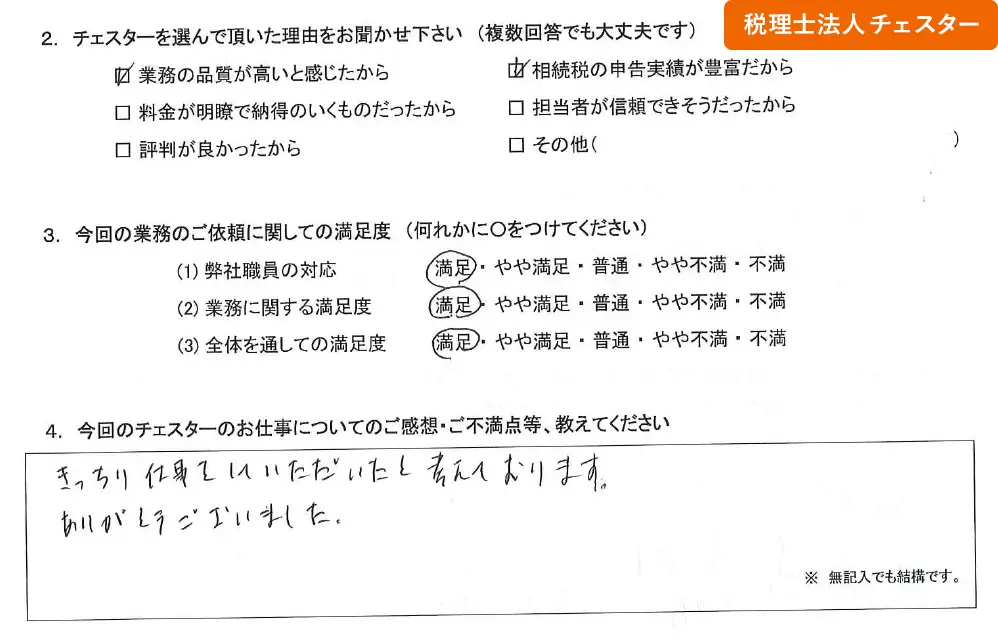 税理士法人 チェスター
2. チェスターを選んで頂いた理由をお聞かせ下さい (複数回答でも大丈夫です)
☑ 業務の品質が高いと感じたから ☑ 相続税の申告実績が豊富だから
□ 料金が明瞭で納得のいくものだったから □ 担当者が信頼できそうだったから
□ 評判が良かったから □ その他( )
3. 今回の業務のご依頼に関しての満足度 (何れかに○をつけてください)
(1) 弊社職員の対応 満足・やや満足・普通・やや不満・不満
(2) 業務に関する満足度 満足・やや満足・普通・やや不満・不満
(3) 全体を通しての満足度 満足・やや満足・普通・やや不満・不満
4. 今回のチェスターのお仕事についてのご感想・ご不満点等、教えてください
きっちり仕事をしていただいたと考えております。
ありがとうございました。
※ 無記入でも結構です。